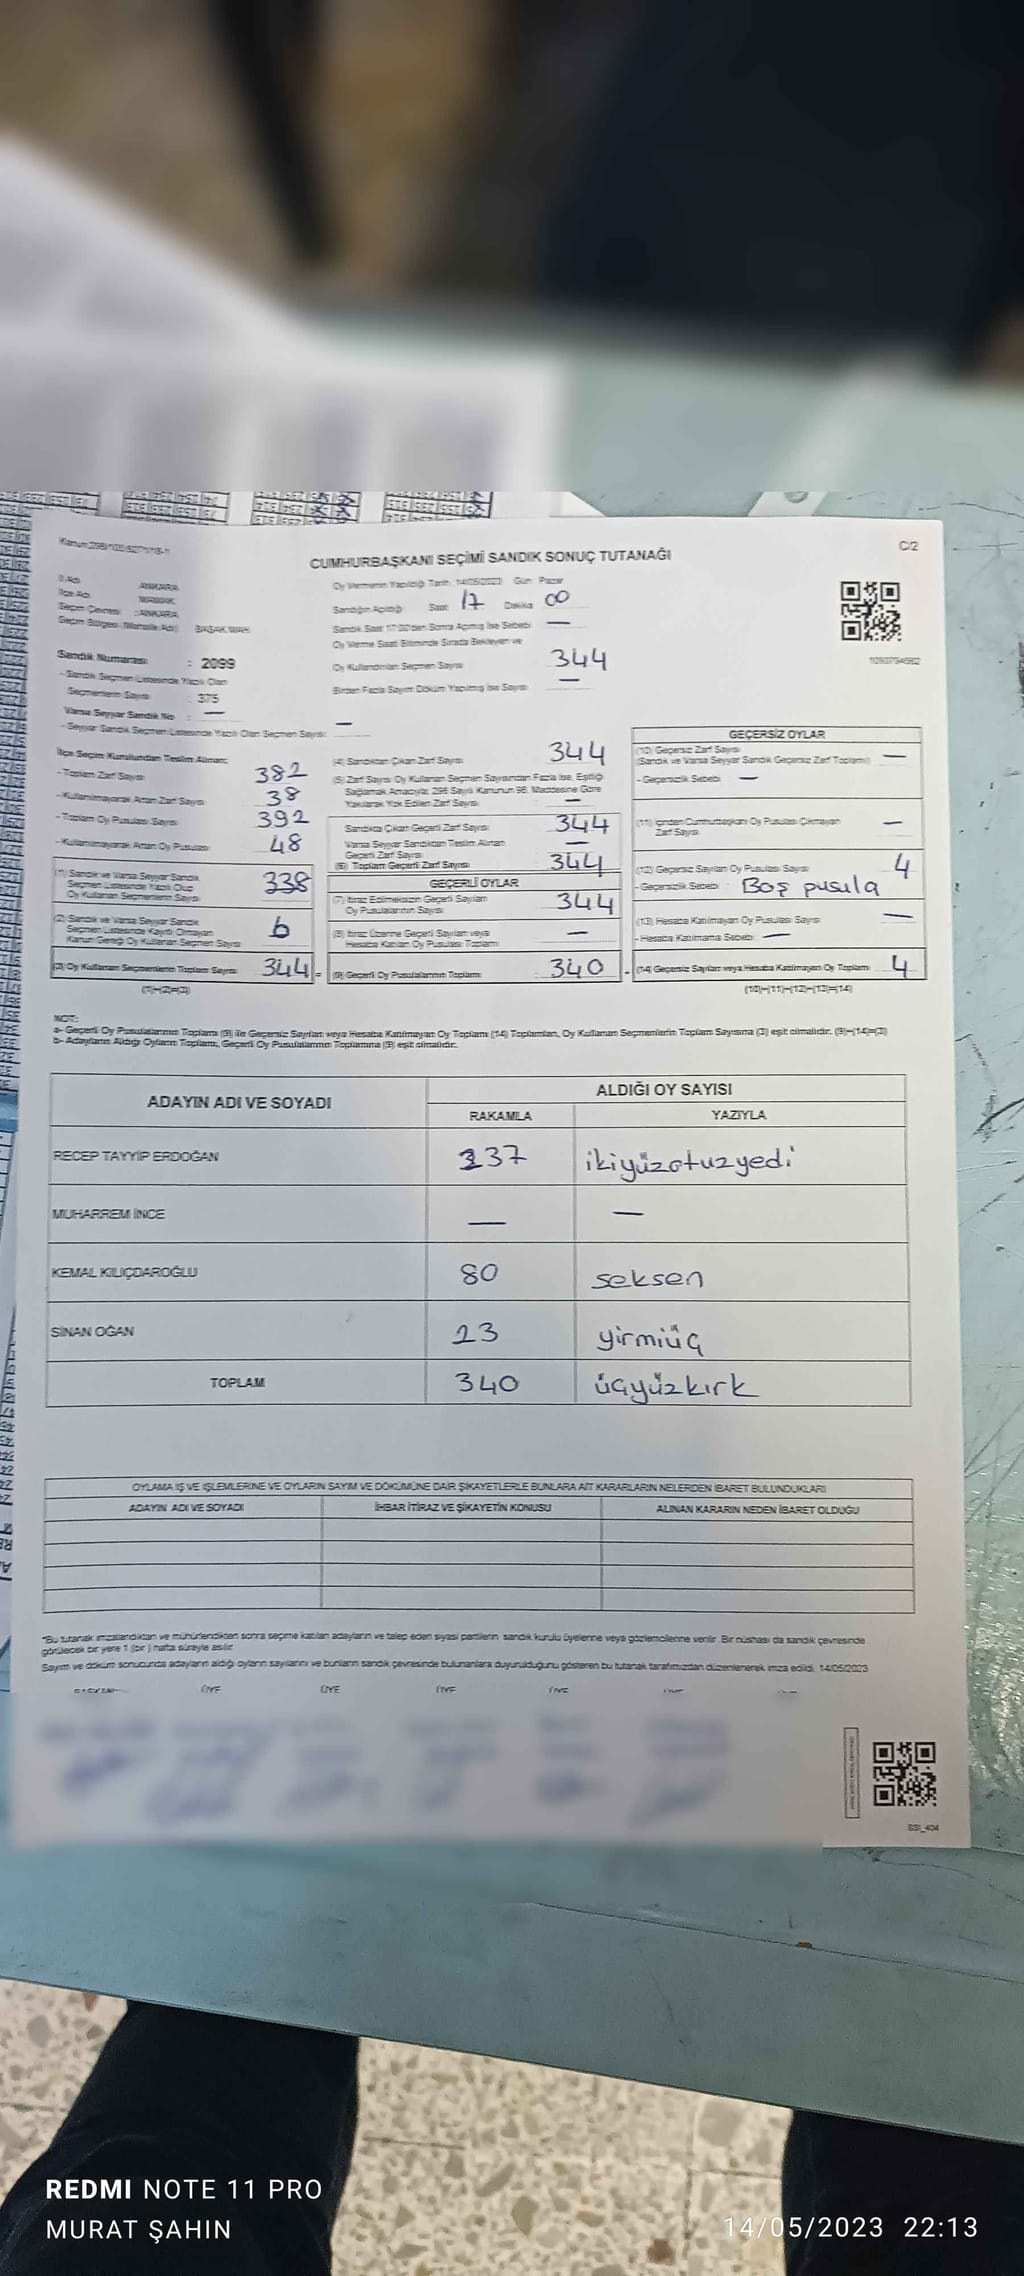 C/2
CUMHURBAŞKANI SEÇİMİ SANDIK SONUÇ TUTANAĞI
İl Adı ANKARA
İlçe Adı MAMAK
Seçim Çevresi : ANKARA
Seçim Bölgesi (Mahalle Adı) BAŞAK MAH.
Sandık Numarası : 2099
- Sandık Seçmen Listesinde Yazılı Olan
Seçmenlerin Sayısı : 375
Varsa Seyyar Sandık No : —
- Seyyar Sandık Seçmen Listesinde Yazılı Olan Seçmen Sayısı: —
Oy Vermenin Yapıldığı Tarih: 14/05/2023 Gün: Pazar
Sandığın Açıldığı Saat 17 Dakika 00
Sandık Saat 17:00'den Sonra Açılmış İse Sebebi —
Oy Verme Saati Bitiminde Sırada Bekleyen ve
Oy Kullandırılan Seçmen Sayısı 344
Birden Fazla Sayım Döküm Yapılmış İse Sayısı —
İlçe Seçim Kurulundan Teslim Alınan;
- Toplam Zarf Sayısı 382
- Kullanılmayarak Artan Zarf Sayısı 38
- Toplam Oy Pusulası Sayısı 392
- Kullanılmayarak Artan Oy Pusulası 48
(1) Sandık ve Varsa Seyyar Sandık
Seçmen Listesinde Yazılı Olup
Oy Kullanan Seçmenlerin Sayısı 338
(2) Sandık ve Varsa Seyyar Sandık
Seçmen Listesinde Kayıtlı Olmayan
Kanun Gereği Oy Kullanan Seçmen Sayısı 6
(3) Oy Kullanan Seçmenlerin Toplam Sayısı 344 =
(1)+(2)=(3)
(4) Sandıktan Çıkan Zarf Sayısı 344
(5) Zarf Sayısı Oy Kullanan Seçmen Sayısından Fazla İse, Eşitliği
Sağlamak Amacıyla; 298 Sayılı Kanunun 98. Maddesine Göre
Yakılarak Yok Edilen Zarf Sayısı —
Sandıkta Çıkan Geçerli Zarf Sayısı 344
Varsa Seyyar Sandıktan Teslim Alınan
Geçerli Zarf Sayısı —
(6) Toplam Geçerli Zarf Sayısı 344
GEÇERLİ OYLAR
(7) İtiraz Edilmeksizin Geçerli Sayılan
Oy Pusulalarının Sayısı 344
(8) İtiraz Üzerine Geçerli Sayılan veya
Hesaba Katılan Oy Pusulası Toplamı —
(9) Geçerli Oy Pusulalarının Toplamı 340
GEÇERSİZ OYLAR
(10) Geçersiz Zarf Sayısı
(Sandık ve Varsa Seyyar Sandık Geçersiz Zarf Toplamı) —
- Geçersizlik Sebebi —
(11) İçinden Cumhurbaşkanı Oy Pusulası Çıkmayan
Zarf Sayısı —
(12) Geçersiz Sayılan Oy Pusulası Sayısı 4
- Geçersizlik Sebebi : Boş pusula
(13) Hesaba Katılmayan Oy Pusulası Sayısı —
- Hesaba Katılmama Sebebi —
(14) Geçersiz Sayılan veya Hesaba Katılmayan Oy Toplamı 4
(10)+(11)+(12)+(13)=(14)
NOT:
a- Geçerli Oy Pusulalarının Toplamı (9) ile Geçersiz Sayılan veya Hesaba Katılmayan Oy Toplamı (14) Toplamları, Oy Kullanan Seçmenlerin Toplam Sayısına (3) eşit olmalıdır. (9)+(14)=(3)
b- Adayların Aldığı Oyların Toplamı, Geçerli Oy Pusulalarının Toplamına (9) eşit olmalıdır.
ADAYIN ADI VE SOYADI ALDIĞI OY SAYISI
RAKAMLA YAZIYLA
RECEP TAYYİP ERDOĞAN 237 ikiyüzotuzyedi
MUHARREM İNCE — —
KEMAL KILIÇDAROĞLU 80 seksen
SİNAN OĞAN 23 yirmiüç
TOPLAM 340 üçyüzkırk
OYLAMA İŞ VE İŞLEMLERİNE VE OYLARIN SAYIM VE DÖKÜMÜNE DAİR ŞİKAYETLERLE BUNLARA AİT KARARLARIN NELERDEN İBARET BULUNDUKLARI
ADAYIN ADI VE SOYADI İHBAR İTİRAZ VE ŞİKAYETİN KONUSU ALINAN KARARIN NEDEN İBARET OLDUĞU
"Bu tutanak imzalandıktan ve mühürlendikten sonra seçime katılan adayların ve talep eden siyasi partilerin sandık kurulu üyelerine veya gözlemcilerine verilir. Bir nüshası da sandık çevresinde
görülecek bir yere 1 (bir) hafta süreyle asılır.
Sayım ve döküm sonucunda adayların aldığı oyların sayılarını ve bunların sandık çevresinde bulunanlara duyurulduğunu gösteren bu tutanak tarafımızdan düzenlenerek imza edildi. 14/05/2023
ÜYE ÜYE ÜYE ÜYE
SSI_404
REDMI NOTE 11 PRO
MURAT ŞAHIN
14/05/2023 22:13